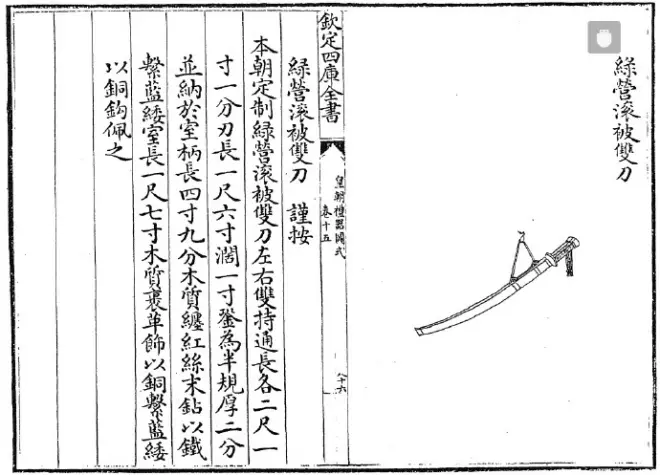 綠營滚被雙刀
欽定四庫全書
皇朝禮器圖式
卷十五
八十六
綠營滚被雙刀 謹按
本朝定制綠營滚被雙刀左右雙持通長各二尺一
寸一分刃長一尺六寸濶一寸銎為半規厚二分
並納於室柄長四寸九分木質纏紅絲末鈷以鐵
繫藍緌室長一尺七寸木質裹革飾以銅繫藍緌
以銅鈎佩之